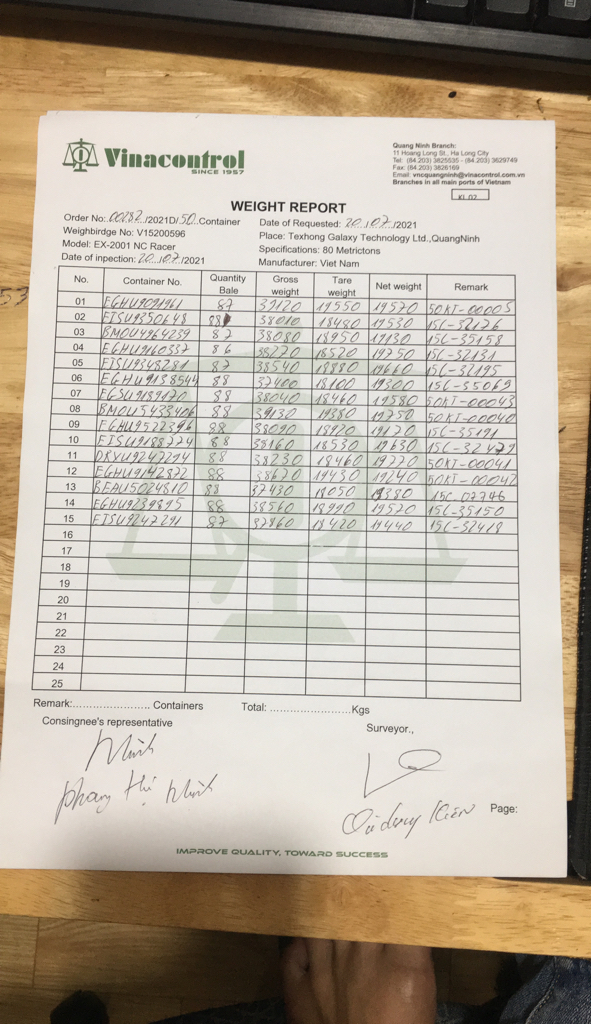 Vinacontrol
SINCE 1957
Quang Ninh Branch:
11 Hoang Long St., Ha Long City
Tel: (84.203) 3825535 - (84.203) 3629749
Fax: (84.203) 3826169
Email: vncquangninh@vinacontrol.com.vn
Branches in all main ports of Vietnam
KL 02
WEIGHT REPORT
Order No: 00282 /2021D/ 50 Container
Date of Requested: 20 / 07 /2021
Weighbirdge No: V15200596
Place: Texhong Galaxy Technology Ltd.,QuangNinh
Model: EX-2001 NC Racer
Specifications: 80 Metrictons
Date of inpection: 20 / 07 /2021
Manufacturer: Viet Nam
No. Container No. Quantity Bale Gross weight Tare weight Net weight Remark
01 EGHU9091961 87 39120 19550 19570 50KT-00005
02 EISU9350648 88 38010 18480 19530 15C-32126
03 BMOU4964239 87 38080 18950 19130 15C-35158
04 EGHU9160337 86 38270 18520 19750 15C-32131
05 EISU9348281 87 38540 18880 19660 15C-32195
06 EGHU9138544 88 37400 18100 19300 15C-35069
07 EGSU9189170 88 38040 18460 19580 50KT-00043
08 BMOU5433406 88 39130 19380 19750 50KT-00040
09 EGHU9522396 88 38090 18920 19170 15C-35191
10 EISU9188774 88 38160 18530 19630 15C-32479
11 DRYU9247294 88 38230 18460 19770 50KT-00041
12 EGHU9142872 88 38670 19430 19240 50KT-00042
13 BEAU5024810 88 37430 18050 19380 15C-07746
14 EGHU9239895 88 38560 18990 19570 15C-35150
15 EISU9247291 87 37860 18420 19440 15C-32418
16
17
18
19
20
21
22
23
24
25
Remark:...................... Containers Total: ........................Kgs
Consingnee's representative
Surveyor.,
Minh
phang thị Minh
Page:
IMPROVE QUALITY, TOWARD SUCCESS